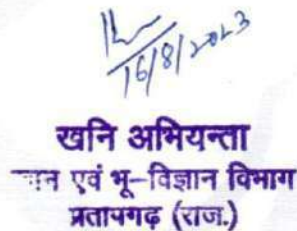 16/8/2023
खनि अभियन्ता
एवं भू-विज्ञान विभाग
प्रतापगढ़ (राज.)